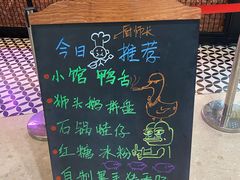 厨师长
今日 推荐
小馆 鸭舌
狮头鹅拼盘
石锅蛙仔
红糖冰粉
自制